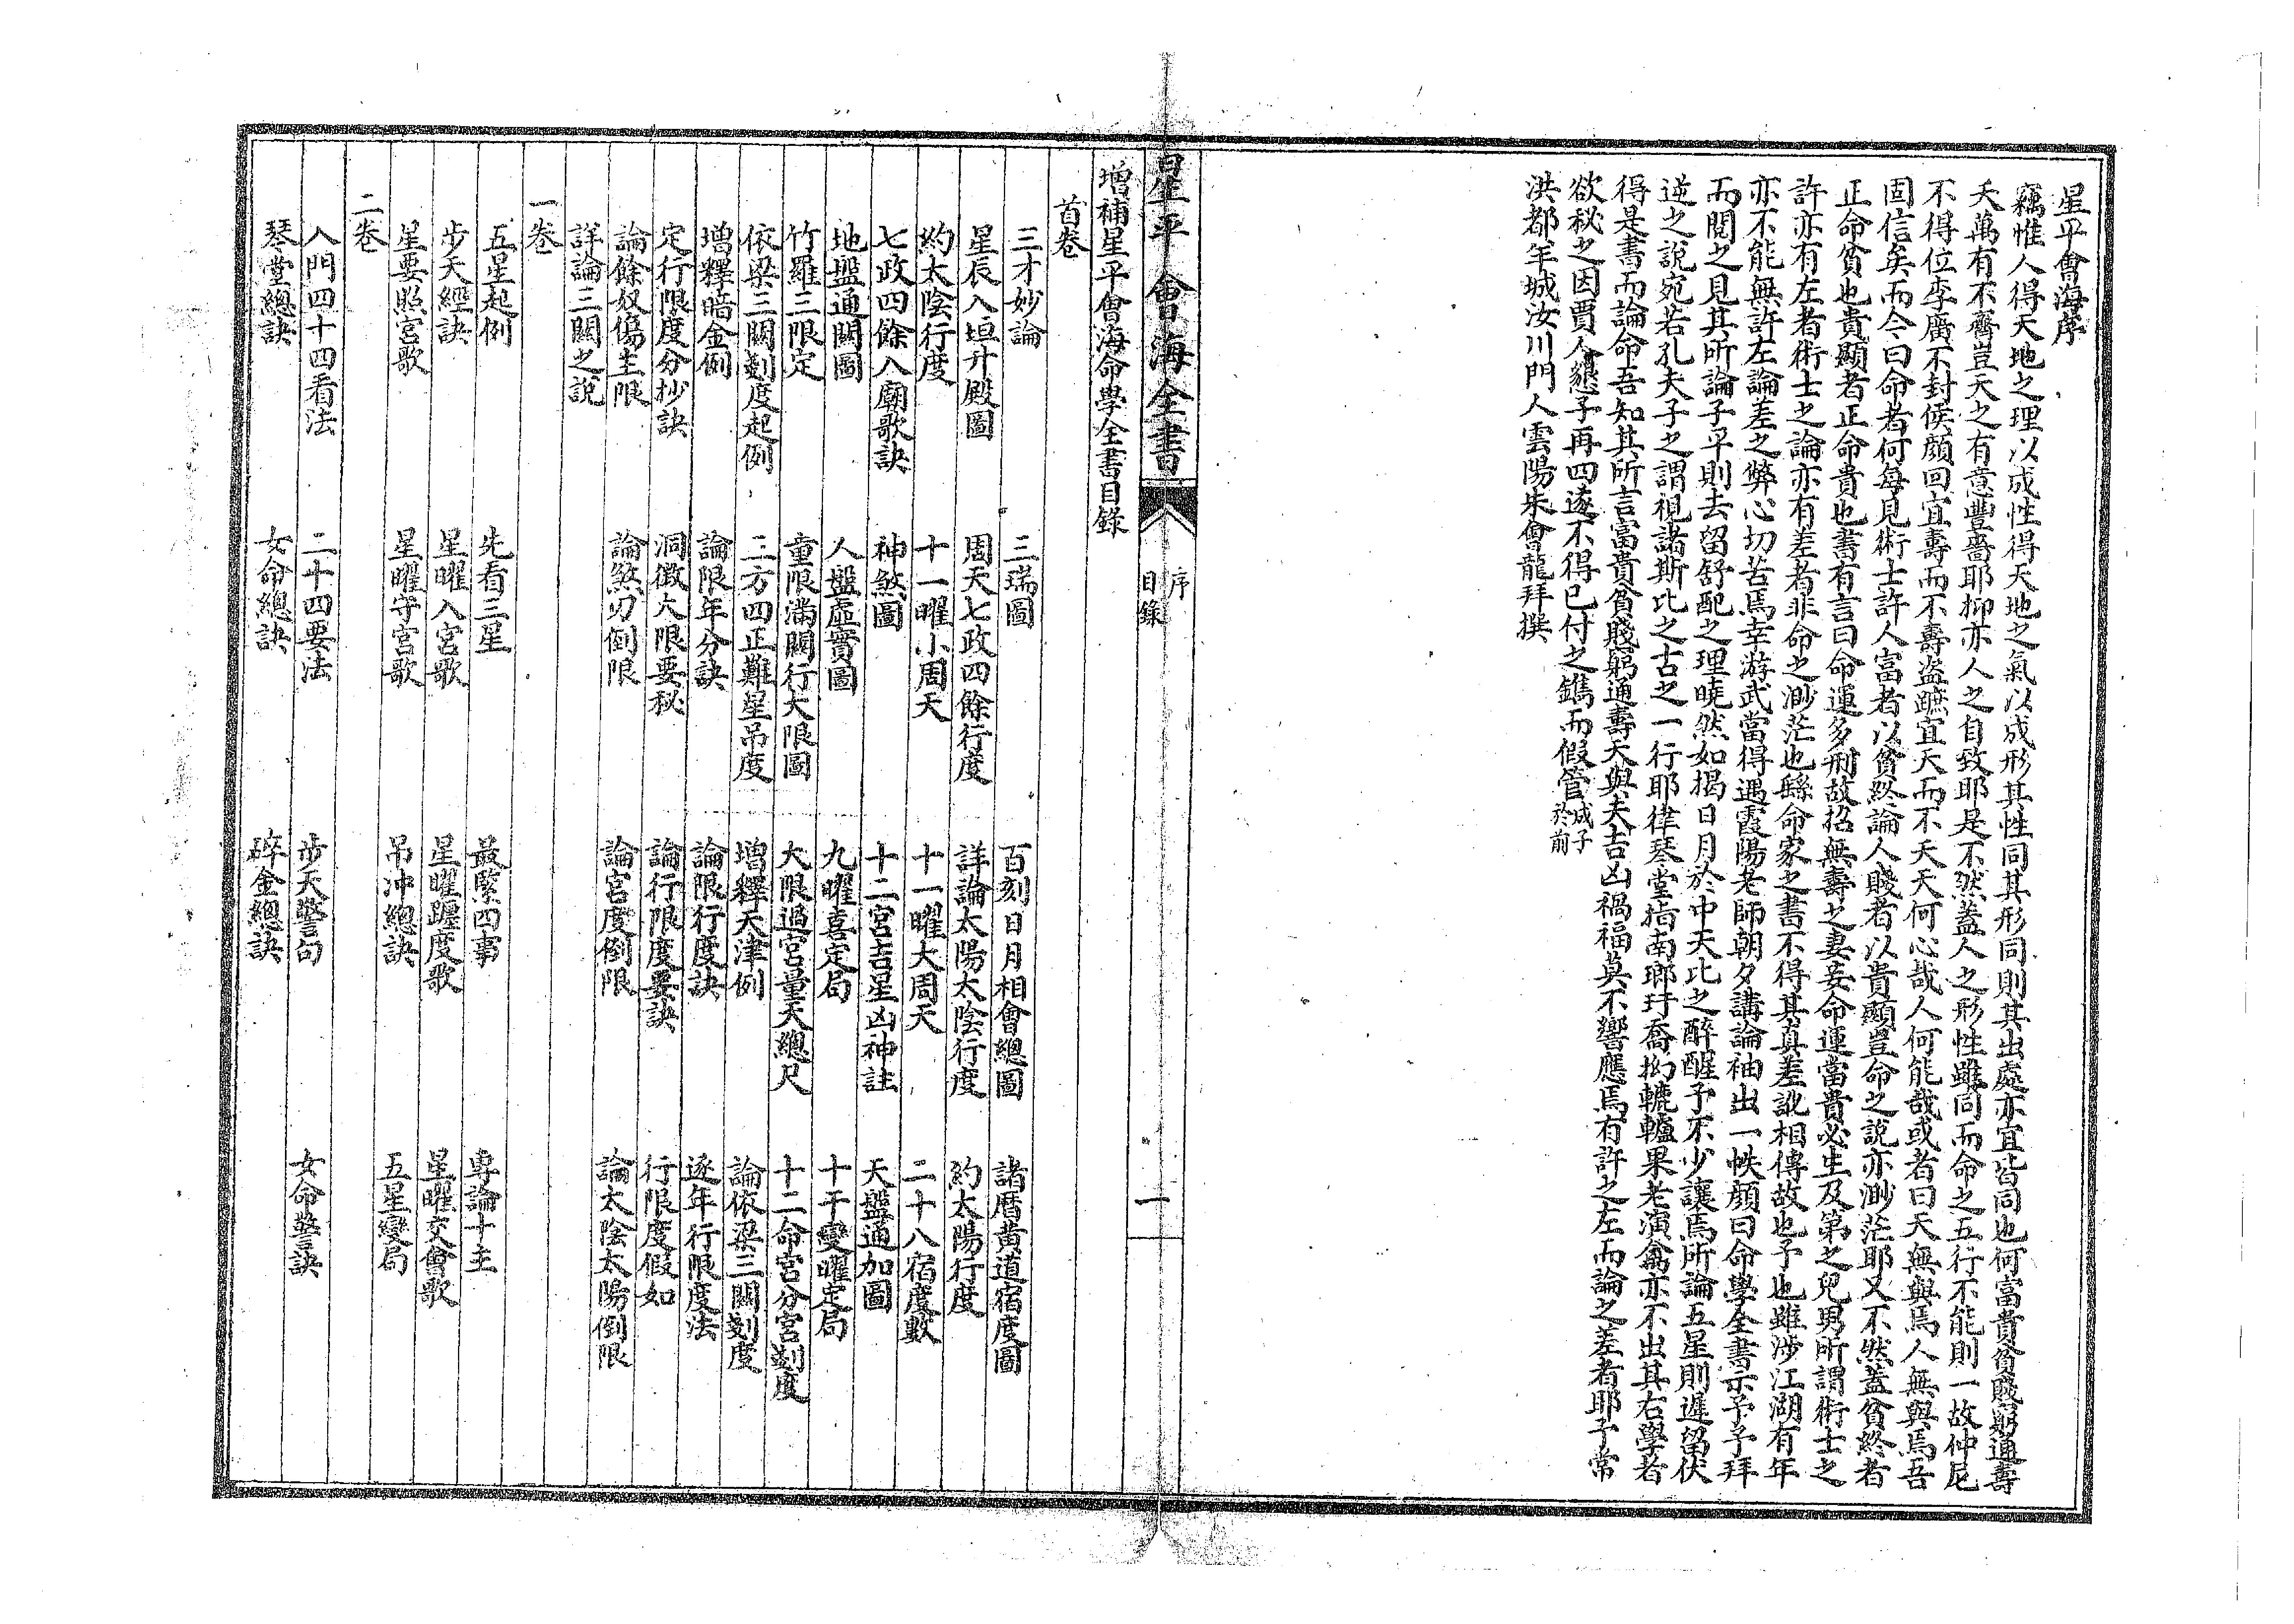 星平會海序
竊惟人得天地之理以成性得天地之氣以成形其性同其形同則其出處亦宜皆同也何富貴貧賤窮通壽
夭萬有不齊豈天之有意豐嗇耶抑亦人之自致耶是不然蓋人之形性雖同而命之五行不能則一故仲尼
不得位李廣不封侯顏回宜壽而不壽盜蹠宜夭而不夭天何心哉人何能哉或者曰天無與焉人無與焉吾
固信矣而今曰命者何每見術士許人富者以貧終論人賤者以貴顯豈命之說亦渺茫耶又不然蓋貧終者
正命貧也貴顯者正命貴也書有言曰命運多刑故招無壽之妻妾命運當貴必生及第之兒男所謂術士之
許亦有左者術士之論亦有差者非命之渺茫也繇命家之書不得其真差訛相傳故也予也雖涉江湖有年
亦不能無許左論差之弊心切苦焉幸游武當得遇霞陽老師朝夕講論袖出一帙顏曰命學全書示予予拜
而閱之見其所論子平則去留舒配之理曉然如揭日月於中天比之醉醒予不少讓焉所論五星則遲留伏
逆之說宛若孔夫子之謂視諸斯比之古之一行耶律琴堂指南瑯玕喬拗轆轤果老演禽亦不出其右學者
得是書而論命吾知其所言富貴貧賤窮通壽夭與夫吉凶禍福莫不響應焉有許之左而論之差者耶予常
欲秘之因賈人懇予再四遂不得已付之鐫而假管城子於前
洪都年城汝川門人雲陽朱會龍拜撰
星平會海全書
序
目錄
一
增補星平會海命學全書目錄
首卷
三才妙論 三瑞圖 百刻日月相會總圖 諸曆黃道宿度圖
星辰入垣升殿圖 周天七政四餘行度 詳論太陽太陰行度 約太陽行度
約太陰行度 十一曜小周天 十一曜大周天 二十八宿度數
七政四餘入廟歌訣 神煞圖 十二宮吉星凶神註 天盤通加圖
地盤通關圖 人盤虛實圖 九曜喜定局 十干變曜定局
竹羅三限定 童限滿關行大限圖 大限過宮量天總尺 十二命宮分宮剗度
依梁三關剗度起例 三方四正難星吊度 增釋天津例 論依梁三關剗度
增釋暗金例 論限年分訣 論限行度訣 逐年行限度法
定行限度分抄訣 洞微大限要秘 論行限度要訣 行限度假如
論餘奴傷主限 論煞刃倒限 論宮度倒限 論太陰太陽倒限
詳論三關之說
一卷
五星起例 先看三星 最緊四事 專論十主
步天經訣 星曜入宮歌 星曜躔度歌 星曜交會歌
星要照宮歌 星曜守宮歌 吊冲總訣 五星變局
二卷
入門四十四看法 二十四要法 步天警句 女命警訣
琴堂總訣 女命總訣 碎金總訣